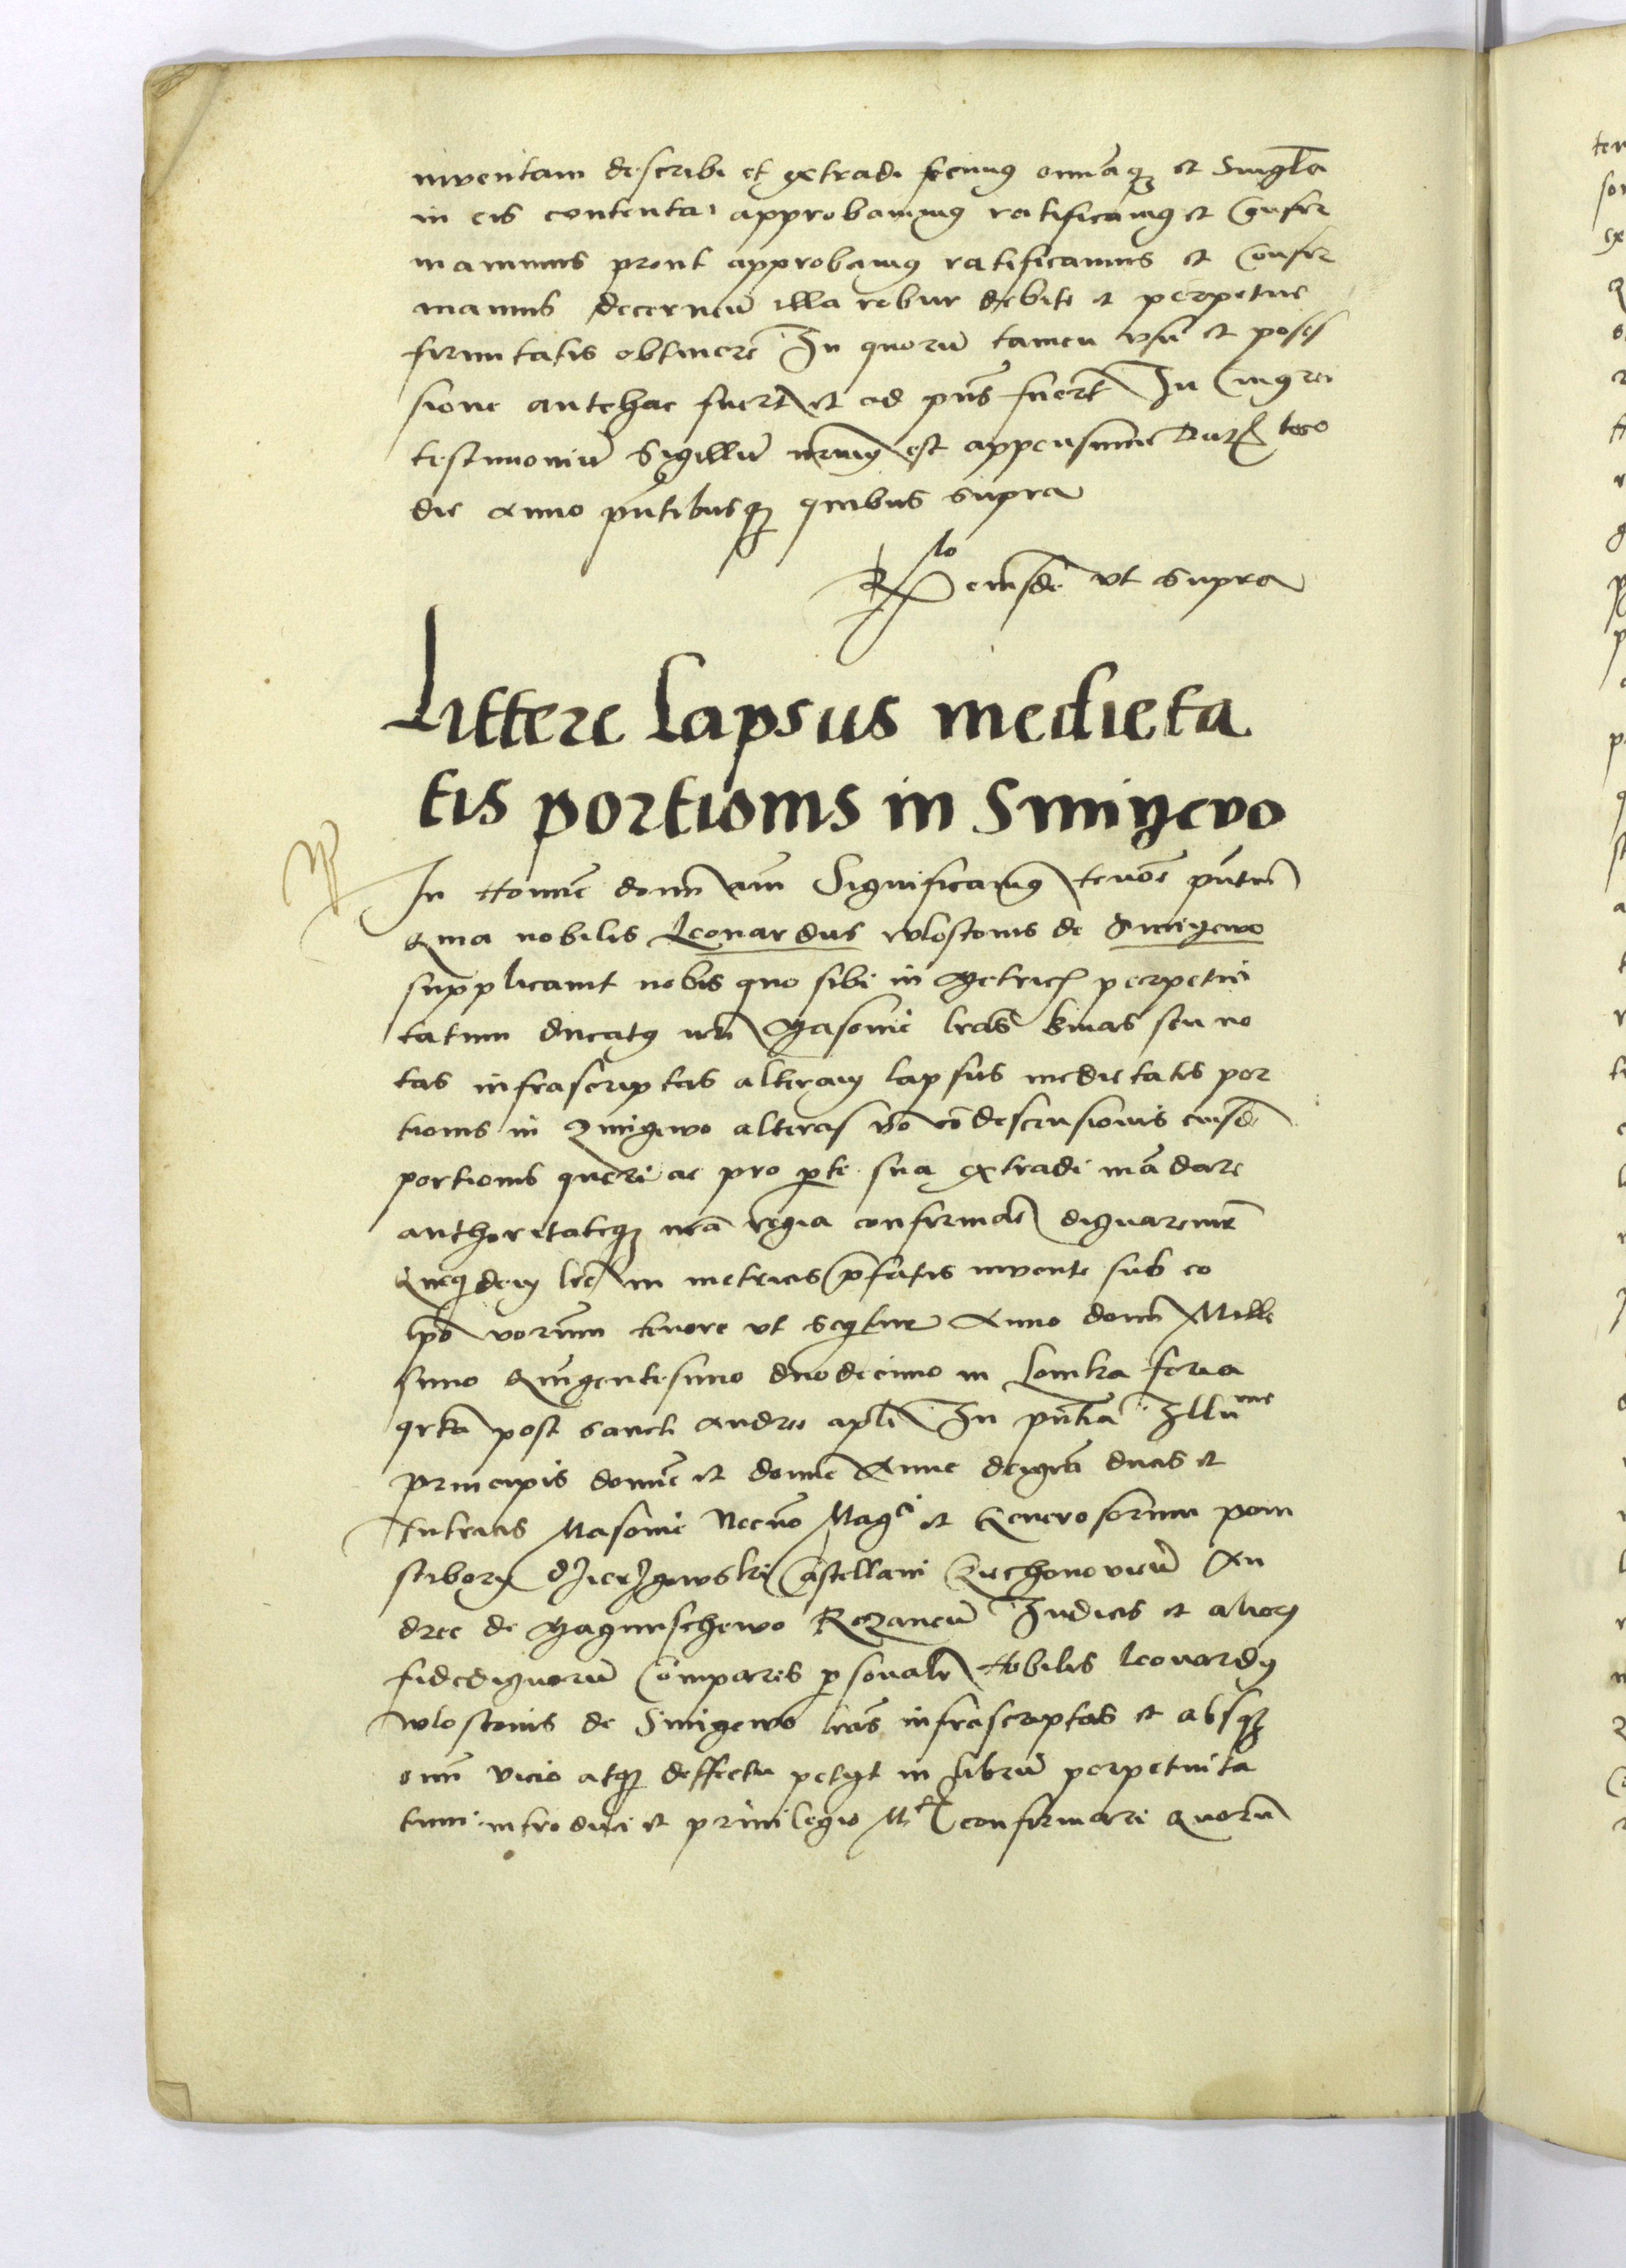 inventam describi et extradi fecimus omniaq3 et Singla
in eis contenta approbavimus ratificavimus et Confir
mavimus prout approbamus ratificamus et Confir
mamus decerneñ illa robur debite et perpetue
firmitatis obtinere In quorũ tamen vsu et posses
sione antehac fuerĩt et ad pñs fuerĩt In Cuius rei
testimoniũ Sigillũ nrm est appensum Datũ loco
die Anno pñtibusq3 quibus supra
Rlo eiusdẽ vt supra
Littere Lapsus medieta
tis portionis in Smiyevo
In Nomine domi am Significamus tenore pñtiũ
Quia nobilis Leonardus wlostonis de Smigewo
supplicavit nobis quo sibi in Metricis perpetui
tatum ducatus nri Masovie lras binas seu no
tas infrascriptas alteram lapsus medietatis por
tionis in Zmigewo alteras vo cõdescensionis eiusdẽ
portionis queri ac pro pte sua extradi mãdare
authoritateq3 nrã regia confirmare dignaremur
Quequidem lre in metricis pfatis invente sub eo
lpo vorum tenore vt seqtur Anno domi Mille
simo Quingentesimo duodecimo in Lomza feria
qrta post sancti Andree apli In pñtia Illume
principis domine et domine Anne deigra ducis et
Tutricis Masovie Necno Magci et Generosorum pom
sciborij dzierzgowski Castellani Czechonovieñ An
dree de Magnuschewo Rozaneñ Judicis et aliorum
fidedignorũ Comparens psonaliter Nobilis leonardus
wlostonis de Smigewo lras infrascriptas et absq3
omni vicio atq3 deffectu petijt in librũ perpetuita
tum introduci et privilegio confirmari Quorũ